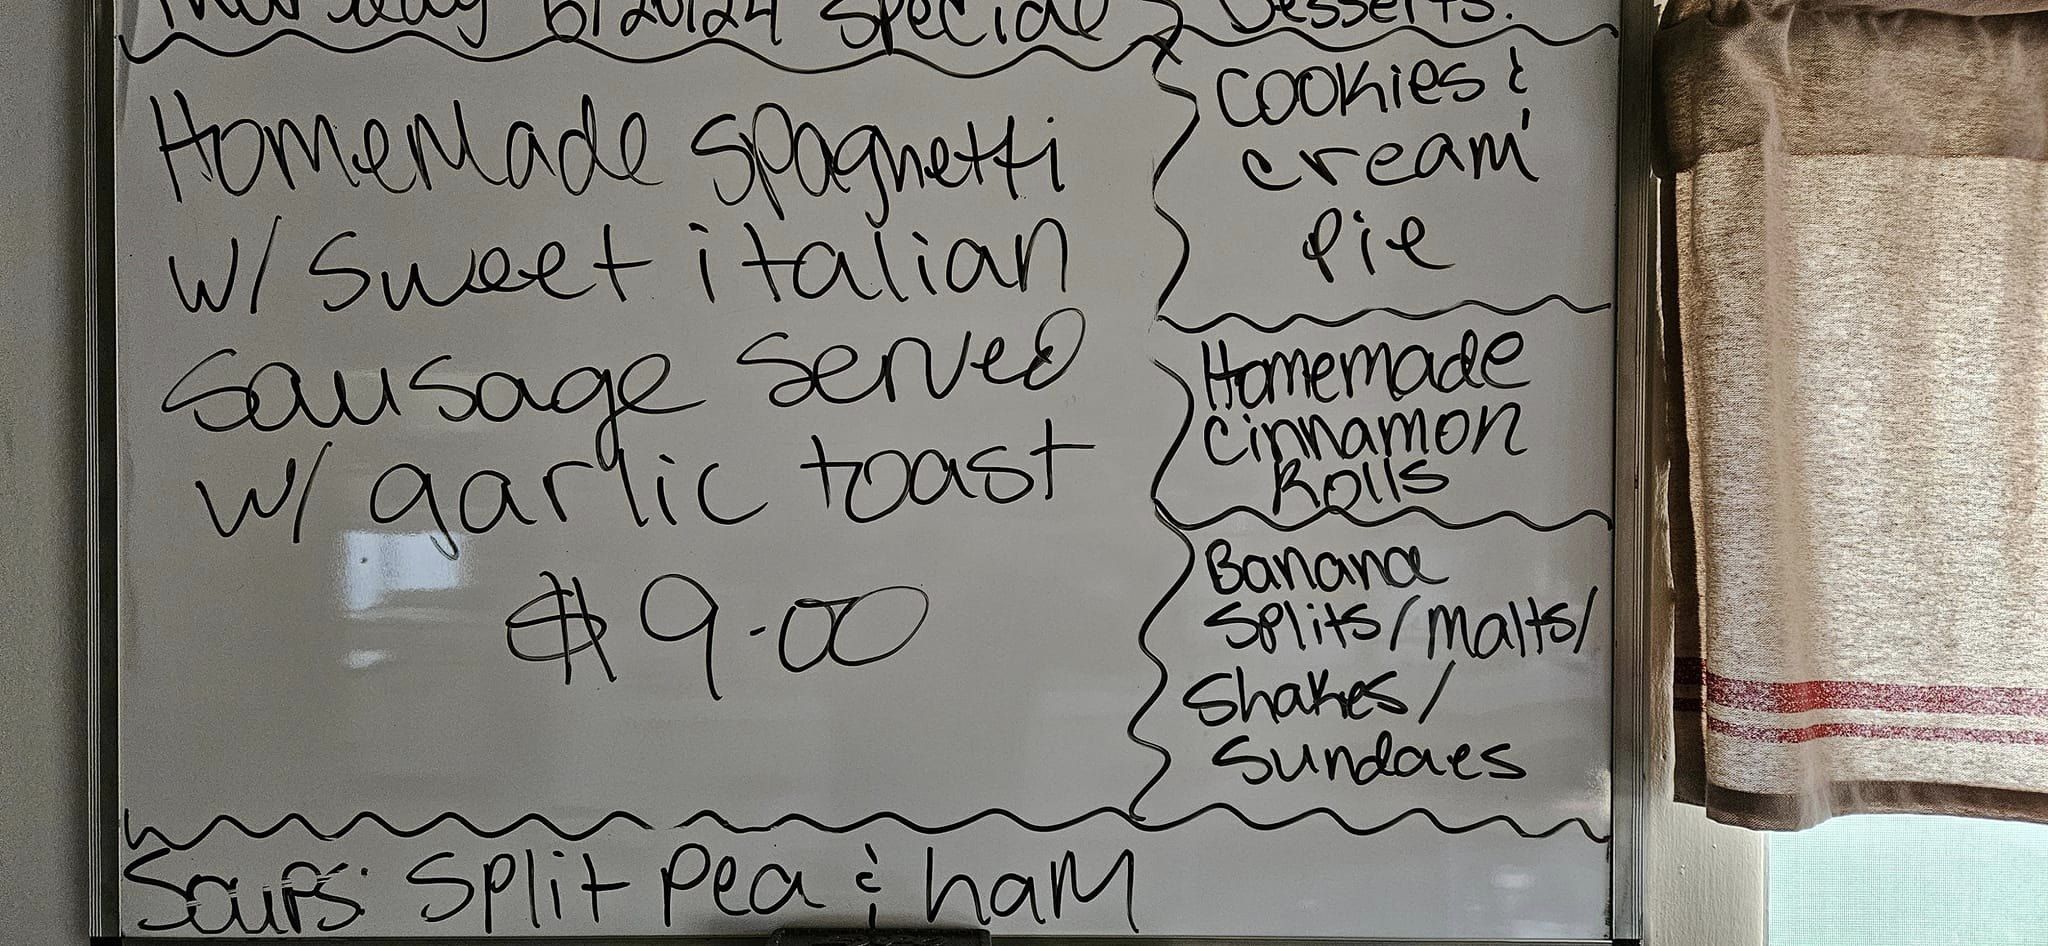 Thursday 6/20/24 Special
Homemade Spaghetti
w/ sweet italian
sausage served
w/ garlic toast
$9.00
Desserts:
Cookies &
cream
pie
Homemade
Cinnamon
Rolls
Banana
Splits/malts/
Shakes/
Sundaes
Soups: Split Pea & ham